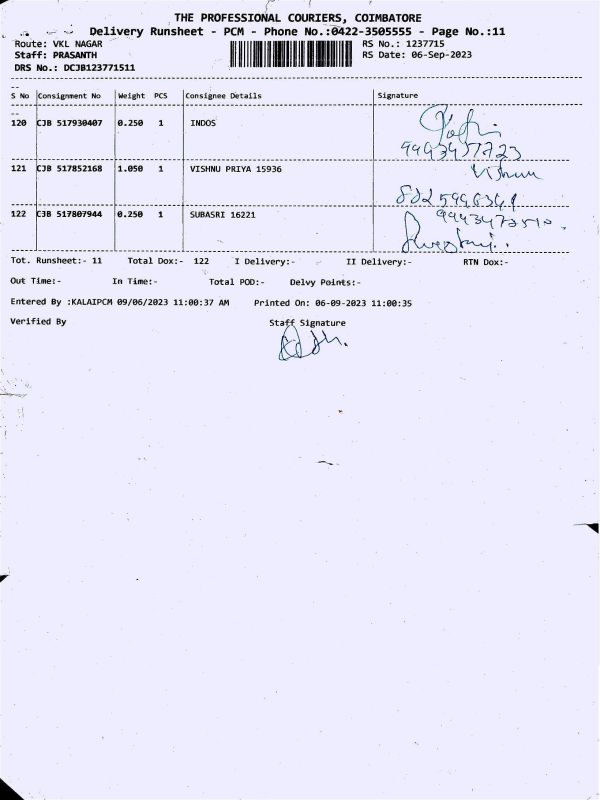 THE PROFESSIONAL COURIERS, COIMBATORE
Delivery Runsheet - PCM - Phone No.:0422-3505555 - Page No.:11
Route: VKL NAGAR
RS No.: 1237715
Staff: PRASANTH
RS Date: 06-Sep-2023
DRS No.: DCJB123771511
S No Consignment No Weight PCS Consignee Details Signature
120 CJB 517930407 0.250 1 INDOS
121 CJB 517852168 1.050 1 VISHNU PRIYA 15936
Vishnu
122 CJB 517807944 0.250 1 SUBASRI 16221
Tot. Runsheet:- 11 Total Dox:- 122 I Delivery:- II Delivery:- RTN Dox:-
Out Time:- In Time:- Total POD:- Delvy Points:-
Entered By :KALAIPCM 09/06/2023 11:00:37 AM Printed On: 06-09-2023 11:00:35
Verified By Staff Signature